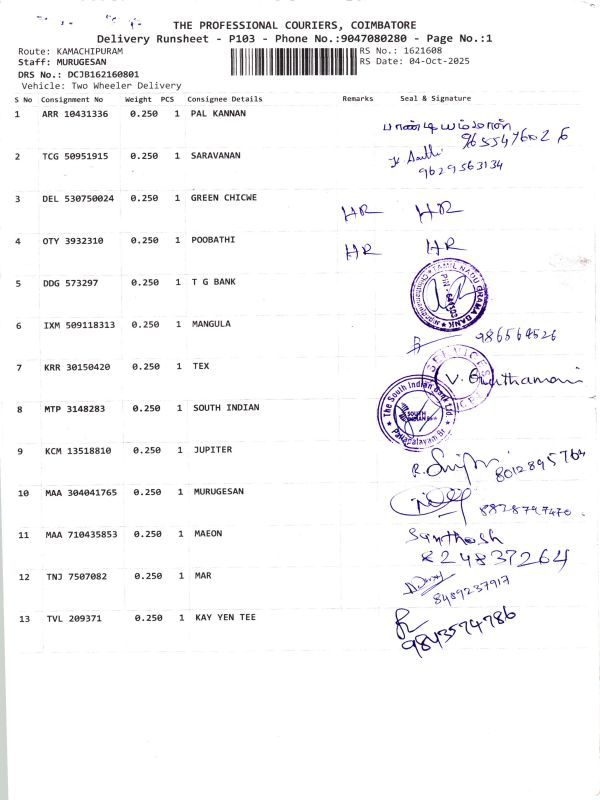 THE PROFESSIONAL COURIERS, COIMBATORE
Delivery Runsheet - P103 - Phone No.:9047080280 - Page No.:1
Route: KAMACHIPURAM RS No.: 1621608
Staff: MURUGESAN RS Date: 04-Oct-2025
DRS No.: DCJB162160801
Vehicle: Two Wheeler Delivery
S No Consignment No Weight PCS Consignee Details Remarks Seal & Signature
1 ARR 10431336 0.250 1 PAL KANNAN
9655476026
2 TCG 50951915 0.250 1 SARAVANAN
9629563134
3 DEL 530750024 0.250 1 GREEN CHICWE HR HR
4 OTY 3932310 0.250 1 POOBATHI HR HR
5 DDG 573297 0.250 1 T G BANK
TAMIL NADU GRAMA BANK
6 IXM 509118313 0.250 1 MANGULA
986564526
7 KRR 30150420 0.250 1 TEX
SERVICES
8 MTP 3148283 0.250 1 SOUTH INDIAN
The South Indian Bank Ltd
9 KCM 13518810 0.250 1 JUPITER
8012895764
10 MAA 304041765 0.250 1 MURUGESAN
8828797470
11 MAA 710435853 0.250 1 MAEON Santhosh
824837264
12 TNJ 7507082 0.250 1 MAR
8489237917
13 TVL 209371 0.250 1 KAY YEN TEE
9843574786